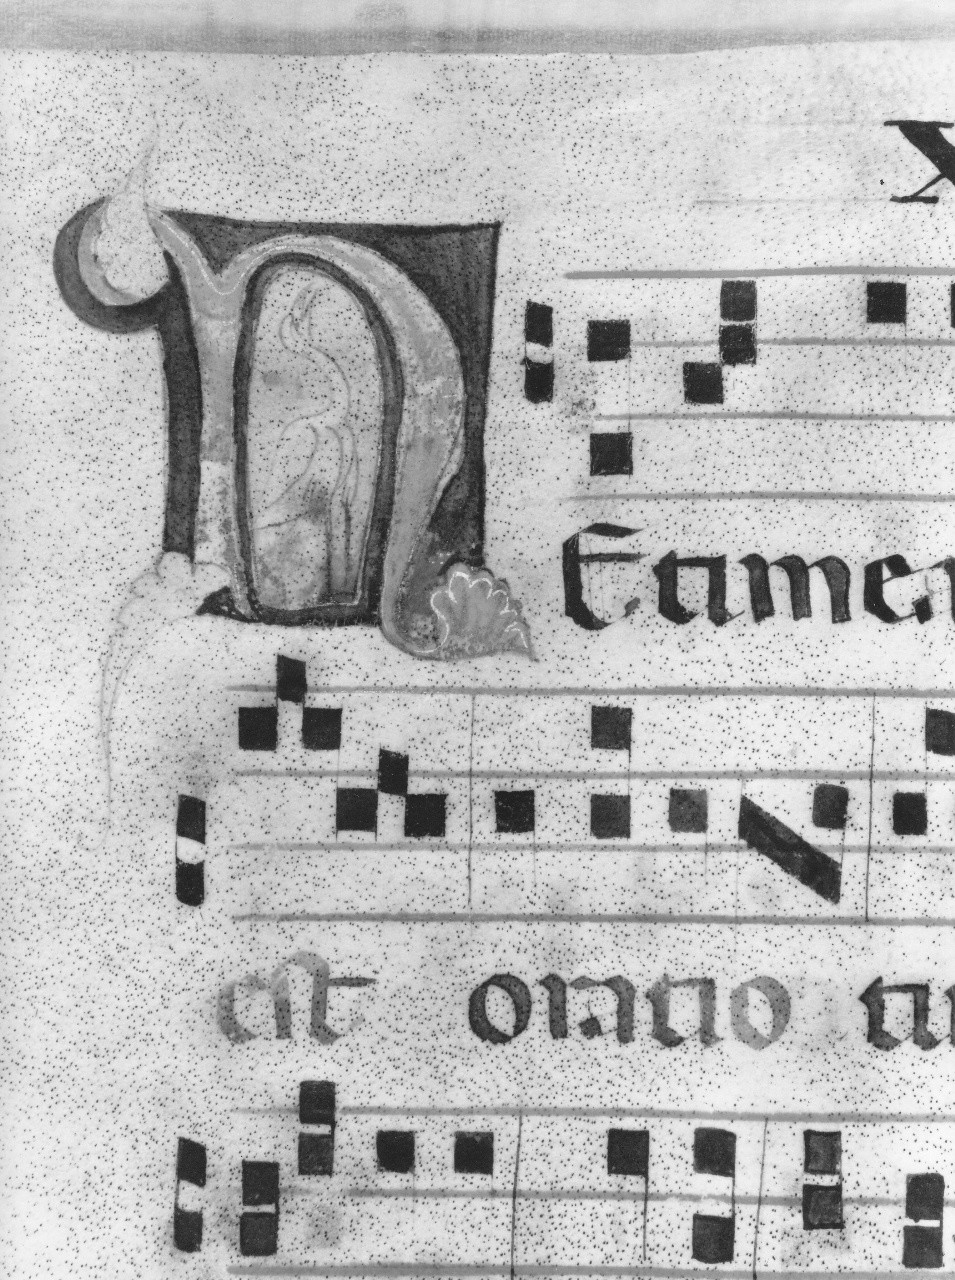 X
NE timea
est oratio tu